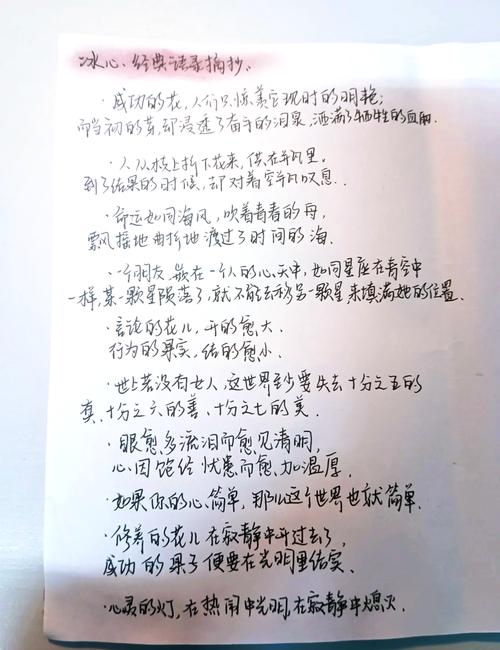 冰心、经典语录摘抄。
·成功的花,人们只惊羡它现时的明艳;
而当初的芽,却浸透了奋斗的泪泉,洒满了牺牲的血雨。
·人从枝上折下花来,供在瓶里。
到了结果的时候,却对着空瓶叹息。
·命运如同海风,吹着青春的舟,
飘摇地曲折地渡过了时间的海。
·一个朋友,嵌在一个人的心天中,如同星座在青空中
一样,某一颗星陨落了,就不能去移另一颗星来填满她的位置。
·言论的花儿,开的愈大,
行为的果实,结的愈小。
·世上若没有女人,这世界至少要失去十分之五的
真、十分之六的善、十分之七的美。
·眼愈多流泪而愈见清明,
心因饱经忧患而愈加温厚。
·如果你的心简单,那么这个世界也就简单。
·修养的花儿在寂静中开过去了,
成功的果子便要在光明里结实。
·心灵的灯,在热闹中光明,在寂静中熄灭。